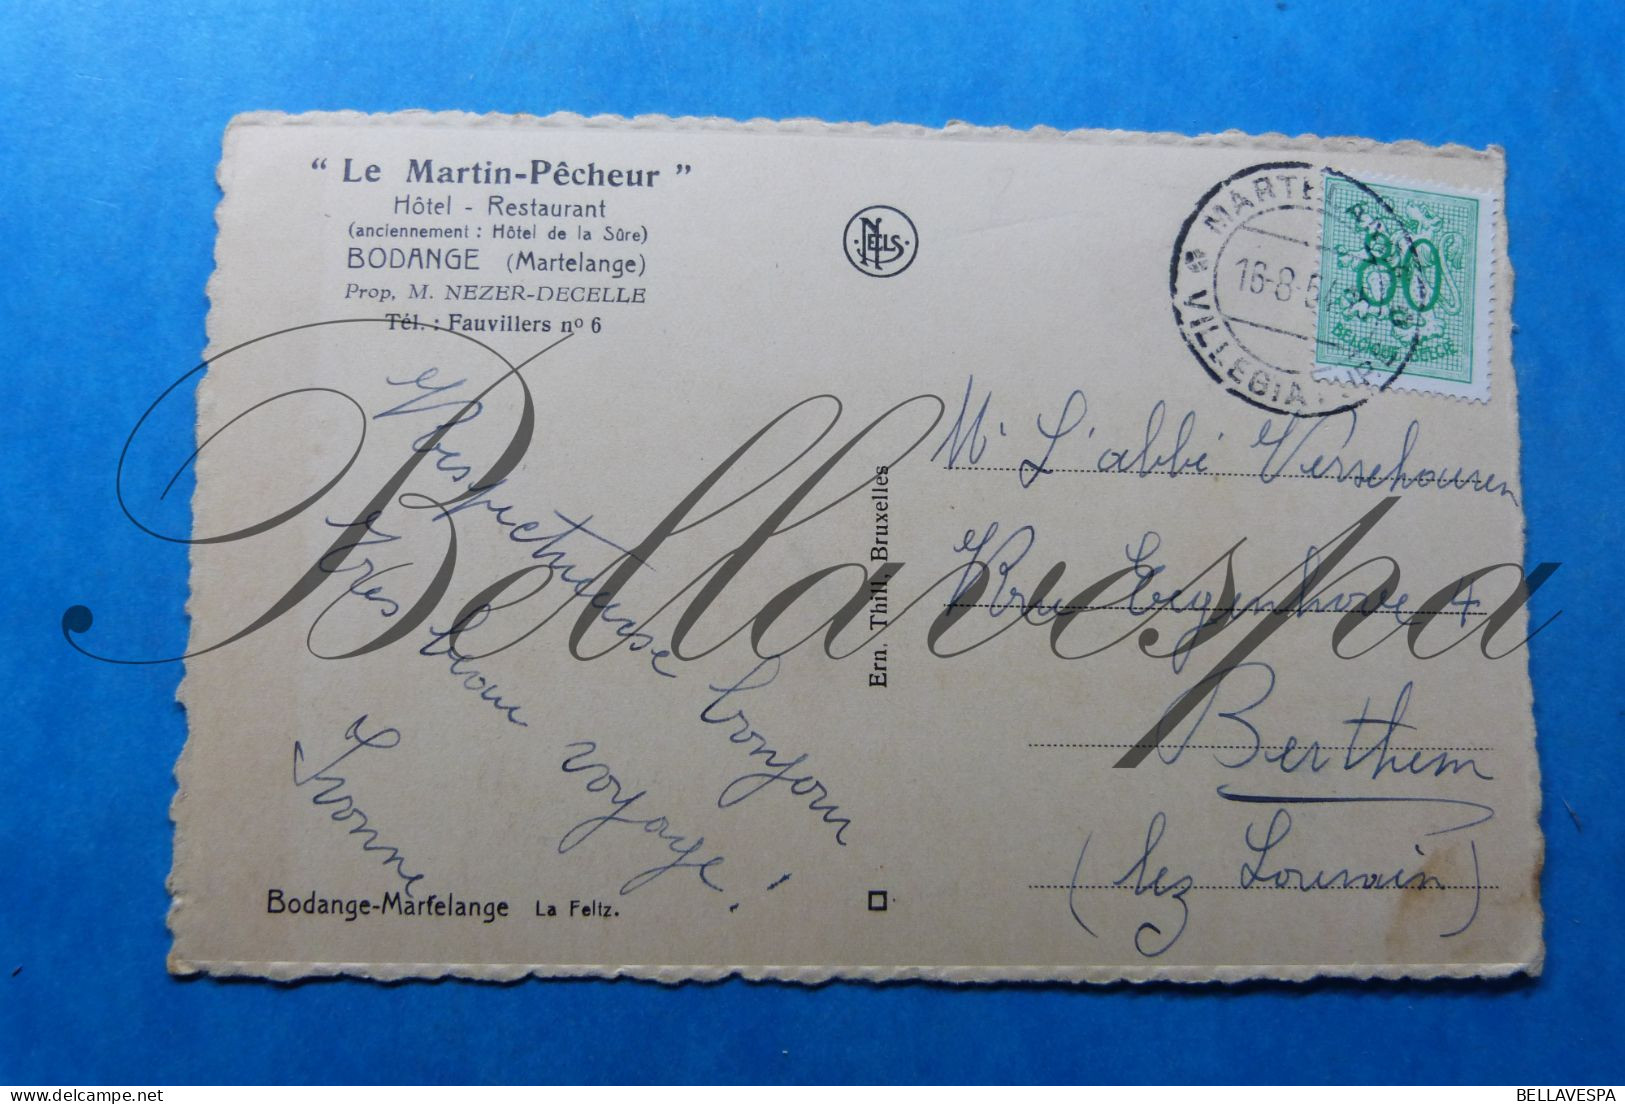 “ Le Martin-Pêcheur ”
Hôtel - Restaurant
(anciennement : Hôtel de la Sûre)
BODANGE (Martelange)
Prop. M. NEZER-DECELLE
Tél. : Fauvillers nº 6
NELS
MARTEL
16-8-5
VILLEGIATUR
80
BELGIQUE BELGIE
Respectueuse bonjour
Très beau voyage !
Ivonne
Ern. Thill, Bruxelles
Mr L'abbé Verschouren
Rue Eegenhove 4
Berthem
(lez Louvain)
Bodange-Martelange La Feltz.
Bellavespa
BELLAVESPA